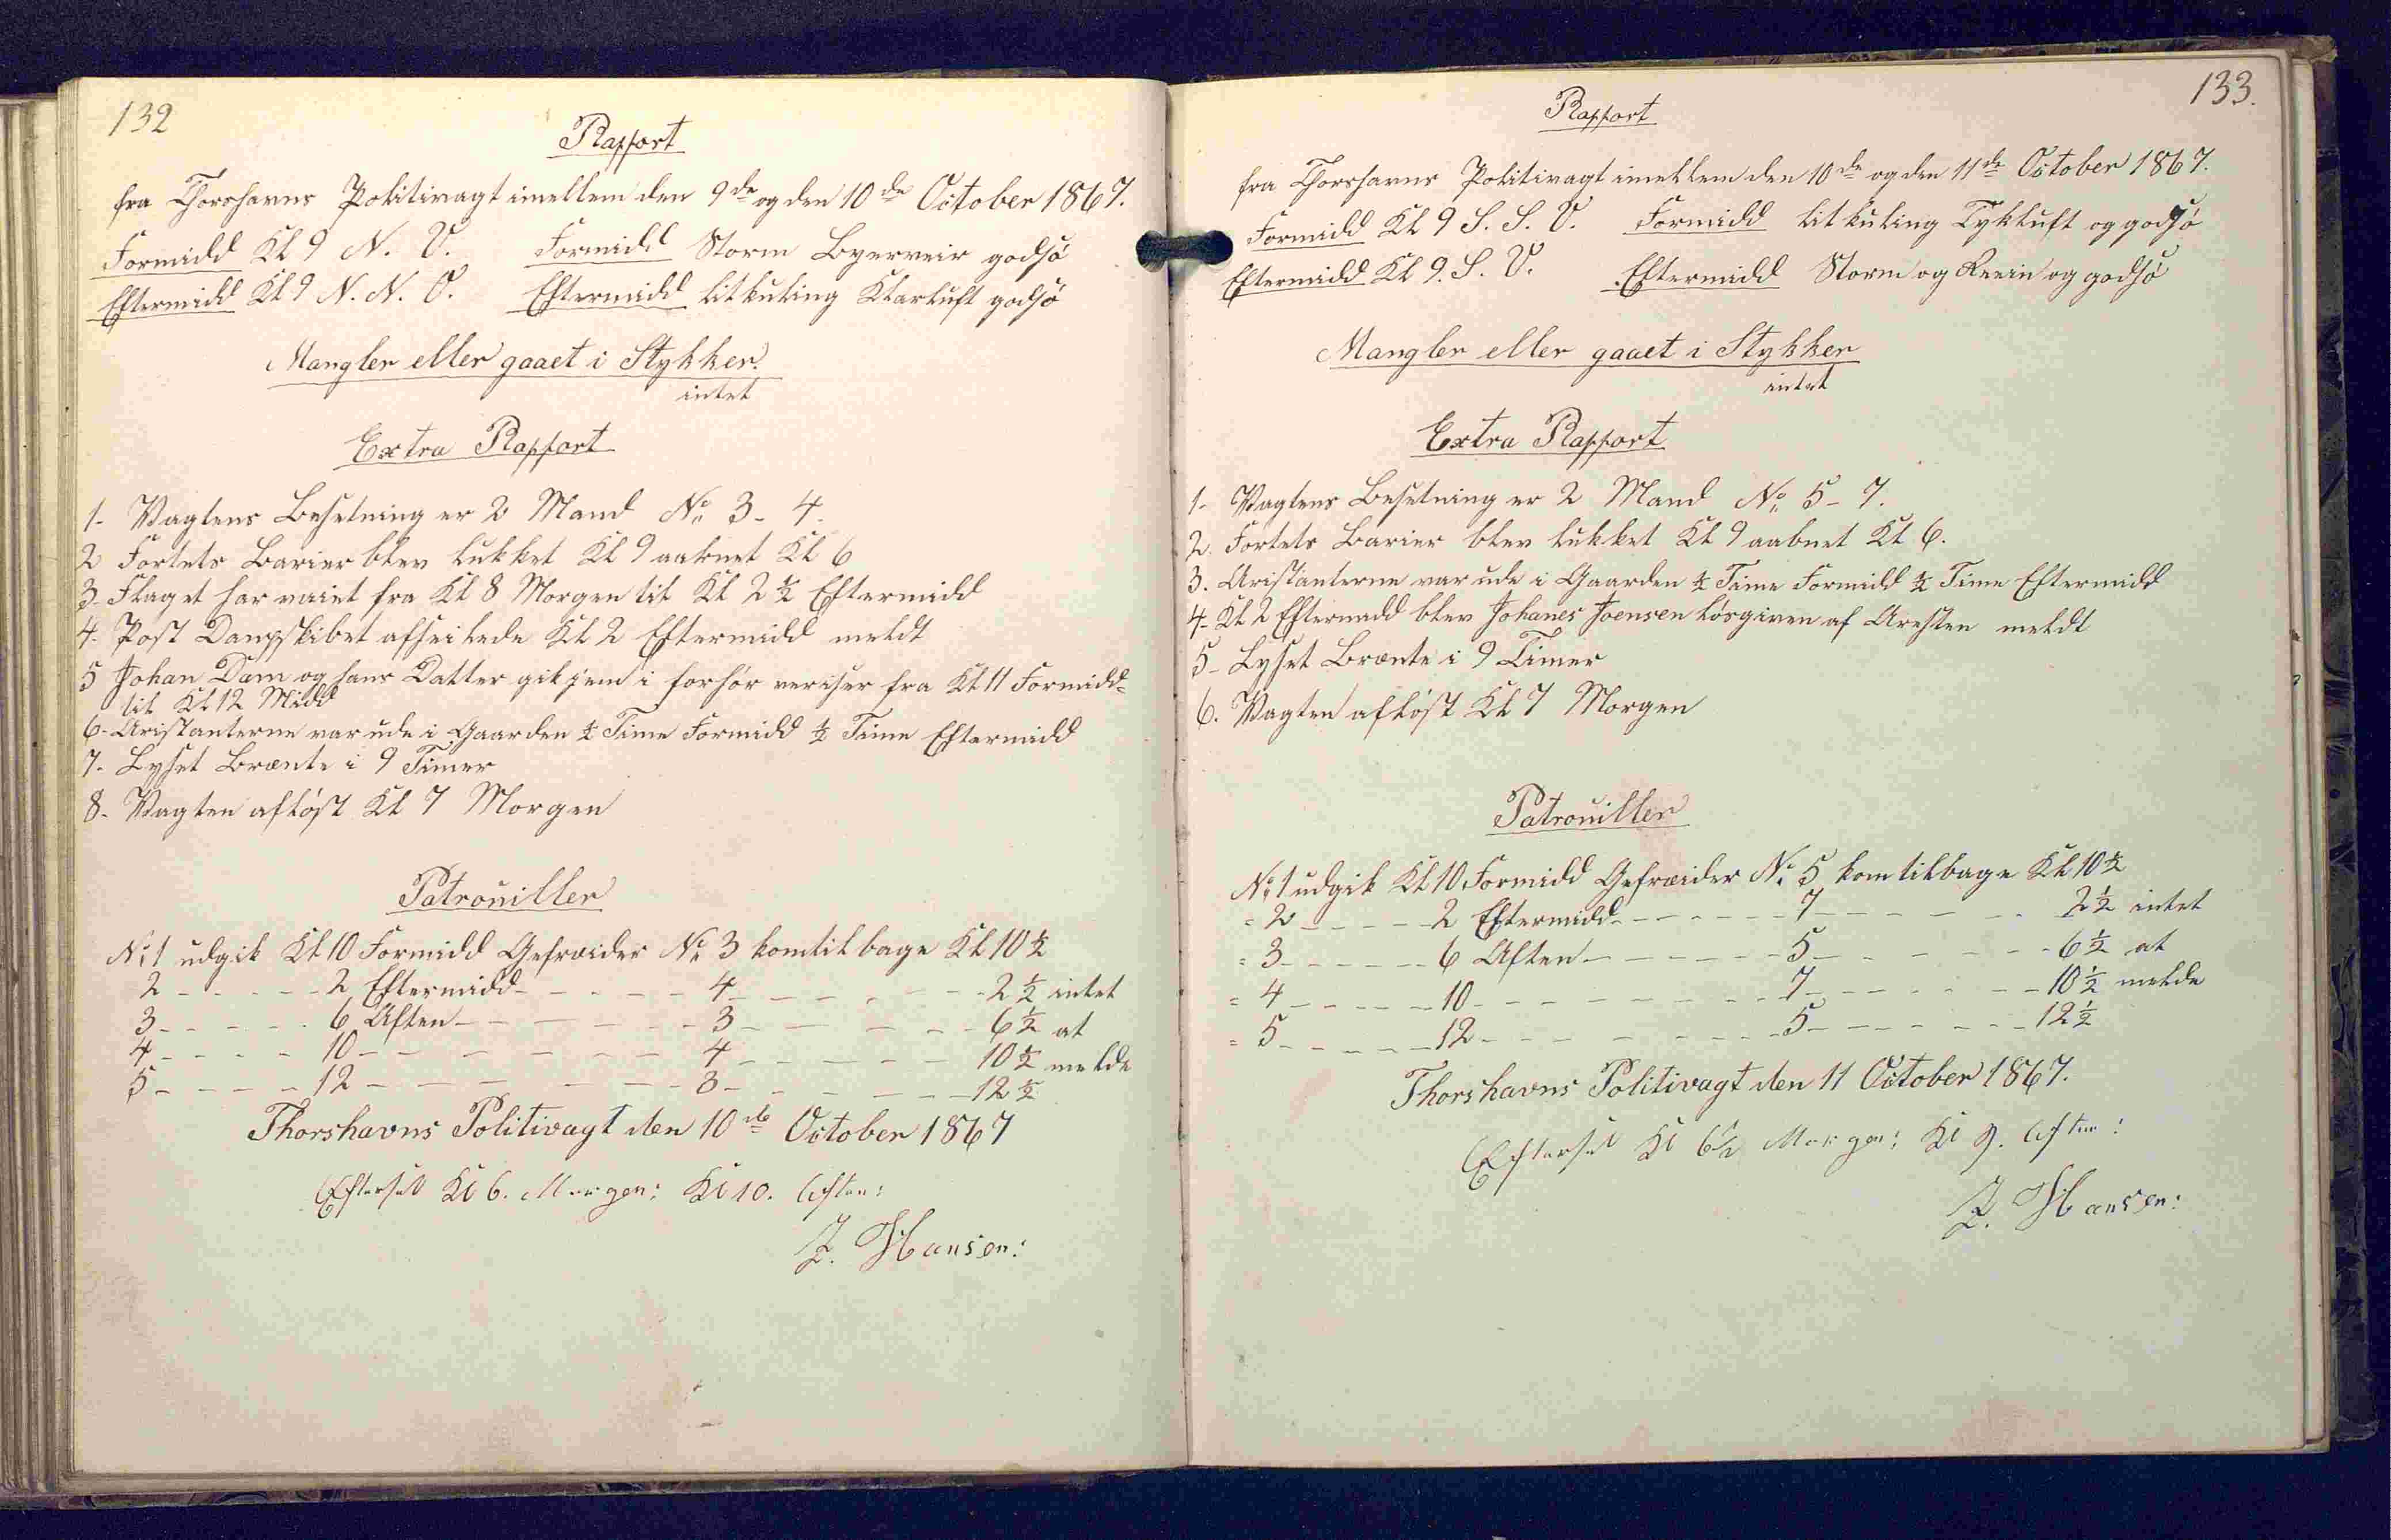 132
Rapport
fra Thorshavns Politivagt imellem den 9de og den 10de October 1867.
Formidd Kl 9 N. V. Formidd Storm Byerveir godsö
Eftermidd Kl 9 N. N. V. Eftermidd litkuling Klarluft godsö
Mangler eller gaaet i Stykker.
intet
Extra Rapport
1- Vagtens Besetning er 2 Mand No 3- 4.
2 Fortets Barier blev lukket Kl 9 aabnet Kl 6
3- Flaget har vaiet fra Kl 8 Morgen til Kl 2 ½ Eftermidd
4. Post Dampskibet afseilede Kl 2 Eftermidd meldt
5 Johan Dam og hans Datter gik hjem i forhör fra Kl 11 Formidd-
til Kl 12 Midd
6- Aristanterne var ude i Gaarden ½ Time Formidd ½ Time Eftermidd
7. Lyset Brænte i 9 Timer
8- Vagten aflöst Kl 7 Morgen
Patrouiller
No 1 udgik Kl 10 Formidd Gefreider No 3 kom tilbage Kl 10 ½
2 - - - - - 2 Eftermidd - - - - - 4 - - - - - 2 ½ intet
3 - - - - - 6 Aften - - - - - 3 - - - - - 6 ½ at
4 - - - - - 10 - - - - - 4 - - - - - 10 ½ melde
5 - - - - - 12 - - - - - 3 - - - - - 12 ½
Thorshavns Politivagt den 10de October 1867
Efterset Kl 6. Morgen: Kl 10. Aften:
J. Hansen:
133.
Rapport
fra Thorshavns Politivagt imellem den 10de og den 11de October 1867.
Formidd Kl 9 S. S. V. Formidd litkuling Tykluft og godsö
Eftermidd Kl 9. S. V. Eftermidd Storm og Rein og godsö
Mangler eller gaaet i Stykker
intet
Extra Rapport
1- Vagtens Besetning er 2 Mand No 5- 7.
2. Fortets Barier blev lukket Kl 9 aabnet Kl 6.
3. Aristanterne var ude i Gaarden ½ Time Formidd ½ Time Eftermidd
4- Kl 2 Eftermedd blev Johanes Joensen lösgiven af Aresten meldt
5- Lyset Brænte i 9 Timer
6. Vagten aflöst Kl 7 Morgen
Patrouiller
No 1 udgik Kl 10 Formidd Gefreider No 5 kom tilbage Kl 10 ½
= 2 - - - - - 2 Eftermidd - - - - - 7 - - - - - 2 ½ intet
= 3 - - - - - 6 Aften - - - - - 5 - - - - - 6 ½ at
= 4 - - - - - 10 - - - - - 7 - - - - - 10 ½ melde
= 5 - - - - - 12 - - - - - 5 - - - - - 12 ½
Thorshavns Politivagt den 11 October 1867.
Efterset Kl 6½ Morgen: Kl 9. Aften:
J. Hansen: